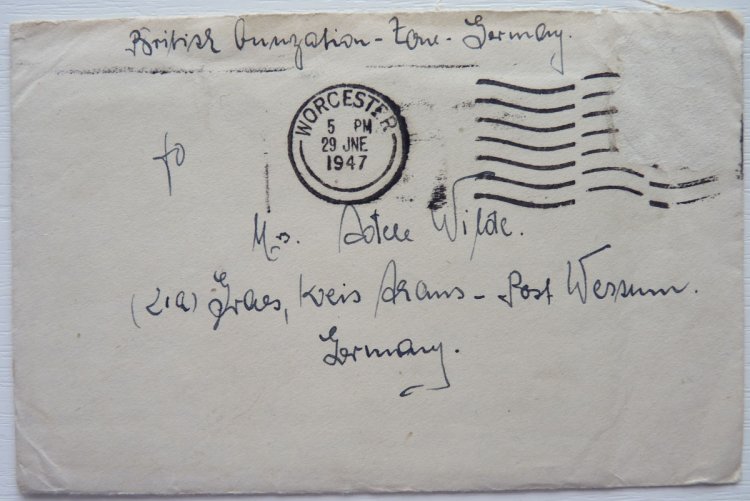 British Occupation - Zone - Germany.
WORCESTER
5 PM
29 JNE
1947
to
Mrs. Adele Wilde.
(21a) Graes, Kreis Ahaus - Post Wessum.
Germany.